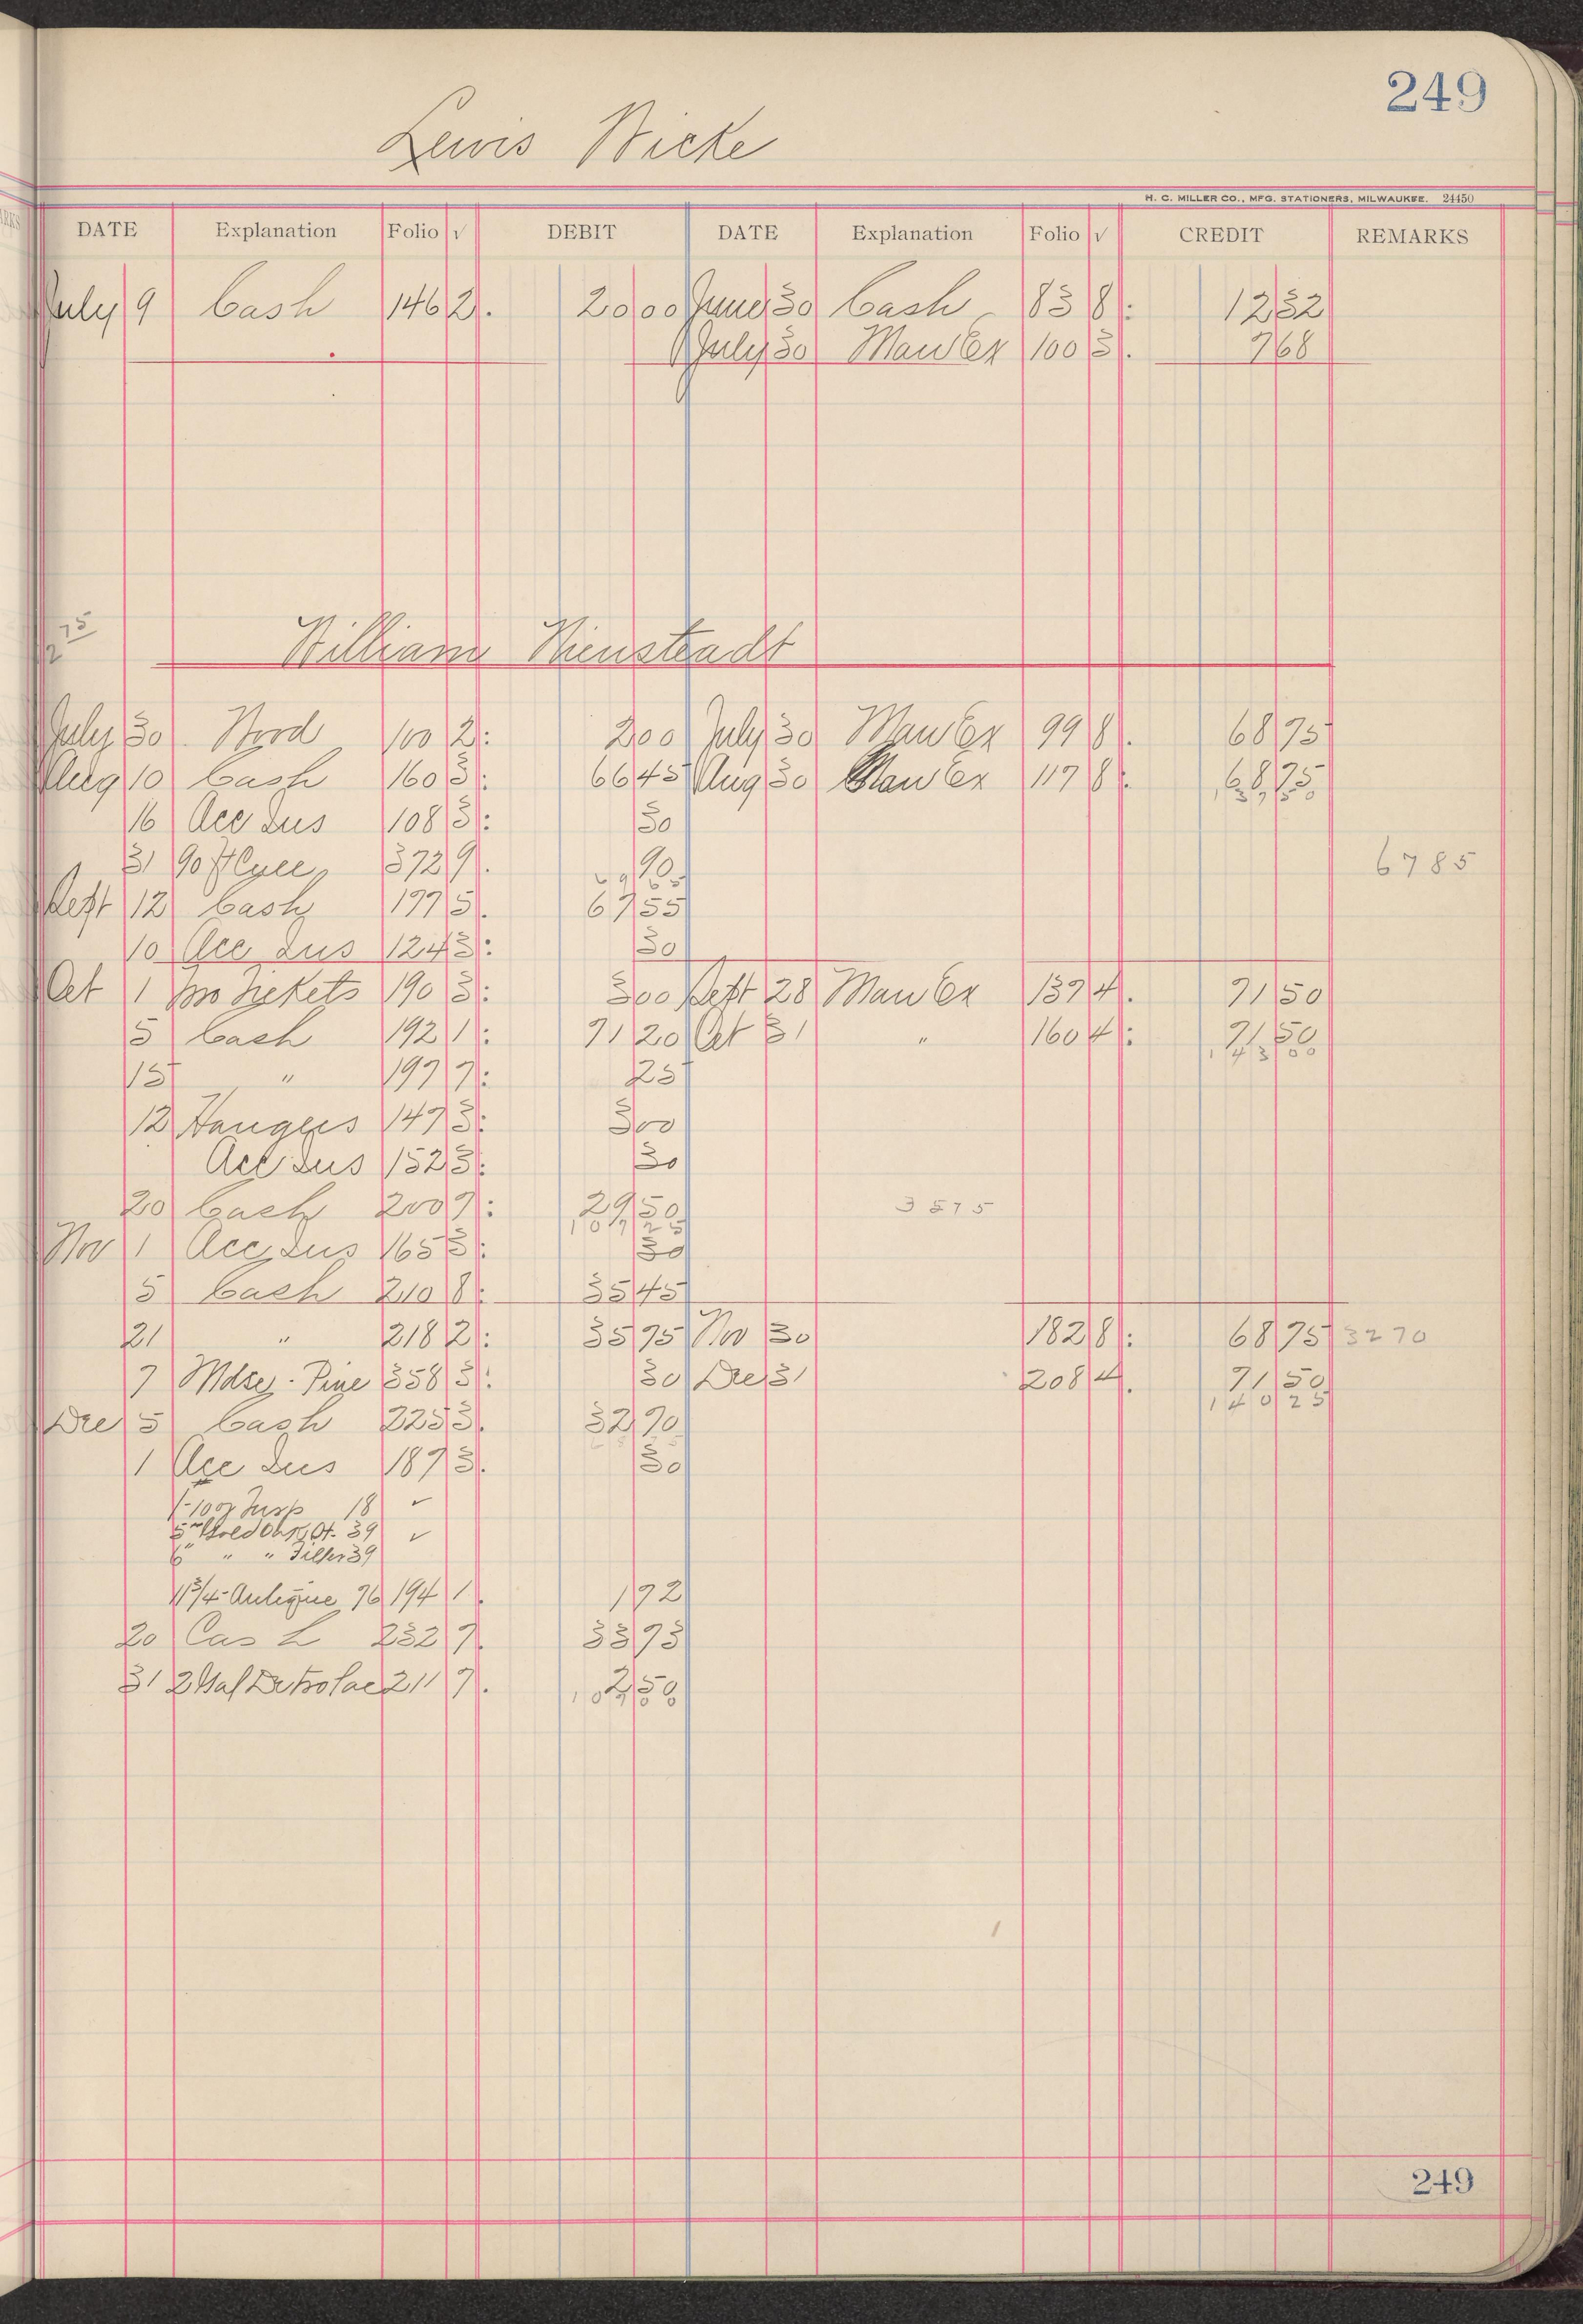 249
Lewis Wicke
H. C. MILLER CO., MFG. STATIONERS, MILWAUKEE. 24450
DATE Explanation Folio √ DEBIT DATE Explanation Folio √ CREDIT REMARKS
July 9 Cash 1462. 2000 June 30 Cash 838: 1232
July 30 Man Ex 1003. 768
William Niensteadt
July 30 Wood 1002: 200 July 30 Man Ex 998. 6875
Aug 10 Cash 1603: 6645 Aug 30 Man Ex 1178: 6875
16 Acc Ins 1083: 30
31 90 3729. 90 6785
Sept 12 Cash 1775. 6755
10 Acc Ins 1243: 30
Oct 1 Tickets 1903: 300 Sept 28 Man Ex 1394. 7150
5 Cash 1921: 7120 Oct 31 " 1604: 7150
14300
15 " 1977: 25
12 Hangers 1473: 300
Acc Ins 1523: 30
20 Cash 2007: 2950 3575
10725
Nov 1 Acc Ins 1653: 30
5 Cash 2108: 3545
21 " 2182: 3575 Nov 30 1828: 6875 3270
7 Mdse. Pine 3583: 30 Dec 31 2084. 7150
14025
Dec 5 Cash 2253. 3270
1 Acc Ins 1873. 30
18 ✓
39 ✓
" " Filler 39
11 3/4 Antique 76 1941. 172
20 Cash 2327. 3373
31 2 Gal 2117. 250
249